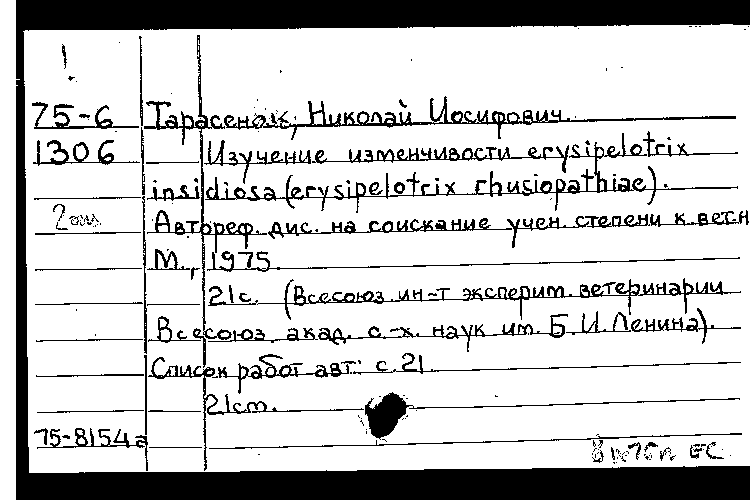 !
75-6 Тарасенок, Николай Иосифович.
1306 Изучение изменчивости erysipelotrix
insidiosa (erysipelotrix rhusiopathiae).
Автореф. дис. на соискание учен. степени к вет.н
М., 1975.
21с. (Всесоюз. ин-т эксперим. ветеринарии
Всесоюз. акад. с.-х. наук им. В.И. Ленина).
Список работ авт.: с.21.
21см.
75-8154а